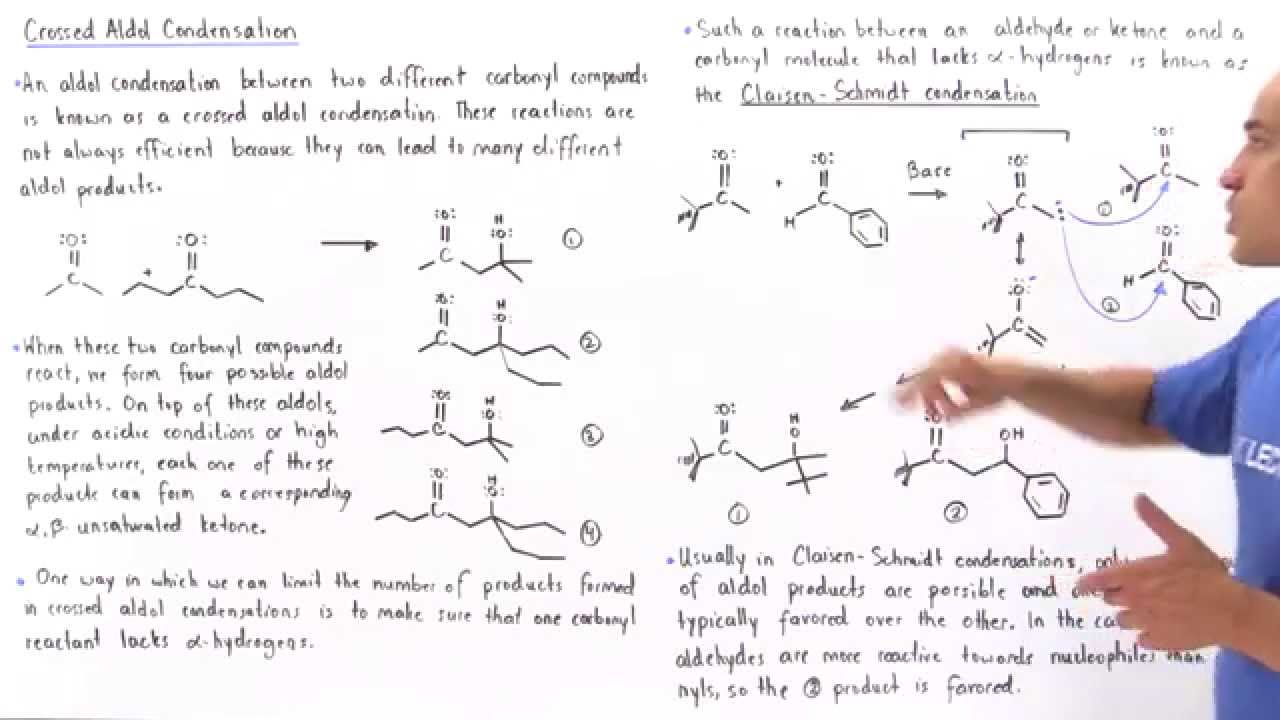 Crossed Aldol Condensation
•An aldol condensation between two different carbonyl compounds
is known as a crossed aldol condensation. These reactions are
not always efficient because they can lead to many different
aldol products.
:O: :O:
C + C
:O: H :O: C ①
:O: H :O: C ②
:O: H :O: C ③
:O: H :O: C ④
•When these two carbonyl compounds
react, we form four possible aldol
products. On top of these aldols,
under acidic conditions or high
temperatures, each one of these
products can form a corresponding
α,β unsaturated ketone.
• One way in which we can limit the number of products formed
in crossed aldol condensations is to make sure that one carbonyl
reactant lacks α-hydrogens.
•Such a reaction between an aldehyde or ketone and a
carbonyl molecule that lacks α-hydrogens is known as
the Claisen-Schmidt condensation
:O: :O: Base :O: :O:
C + H C C C
① :O:
H C
② :O:
C
:O: H O C :O: OH C
① ②
•Usually in Claisen-Schmidt condensations,
of aldol products are possible and
typically favored over the other. In the
aldehydes are more reactive towards nucleophiles than
nyls, so the ② product is favored.